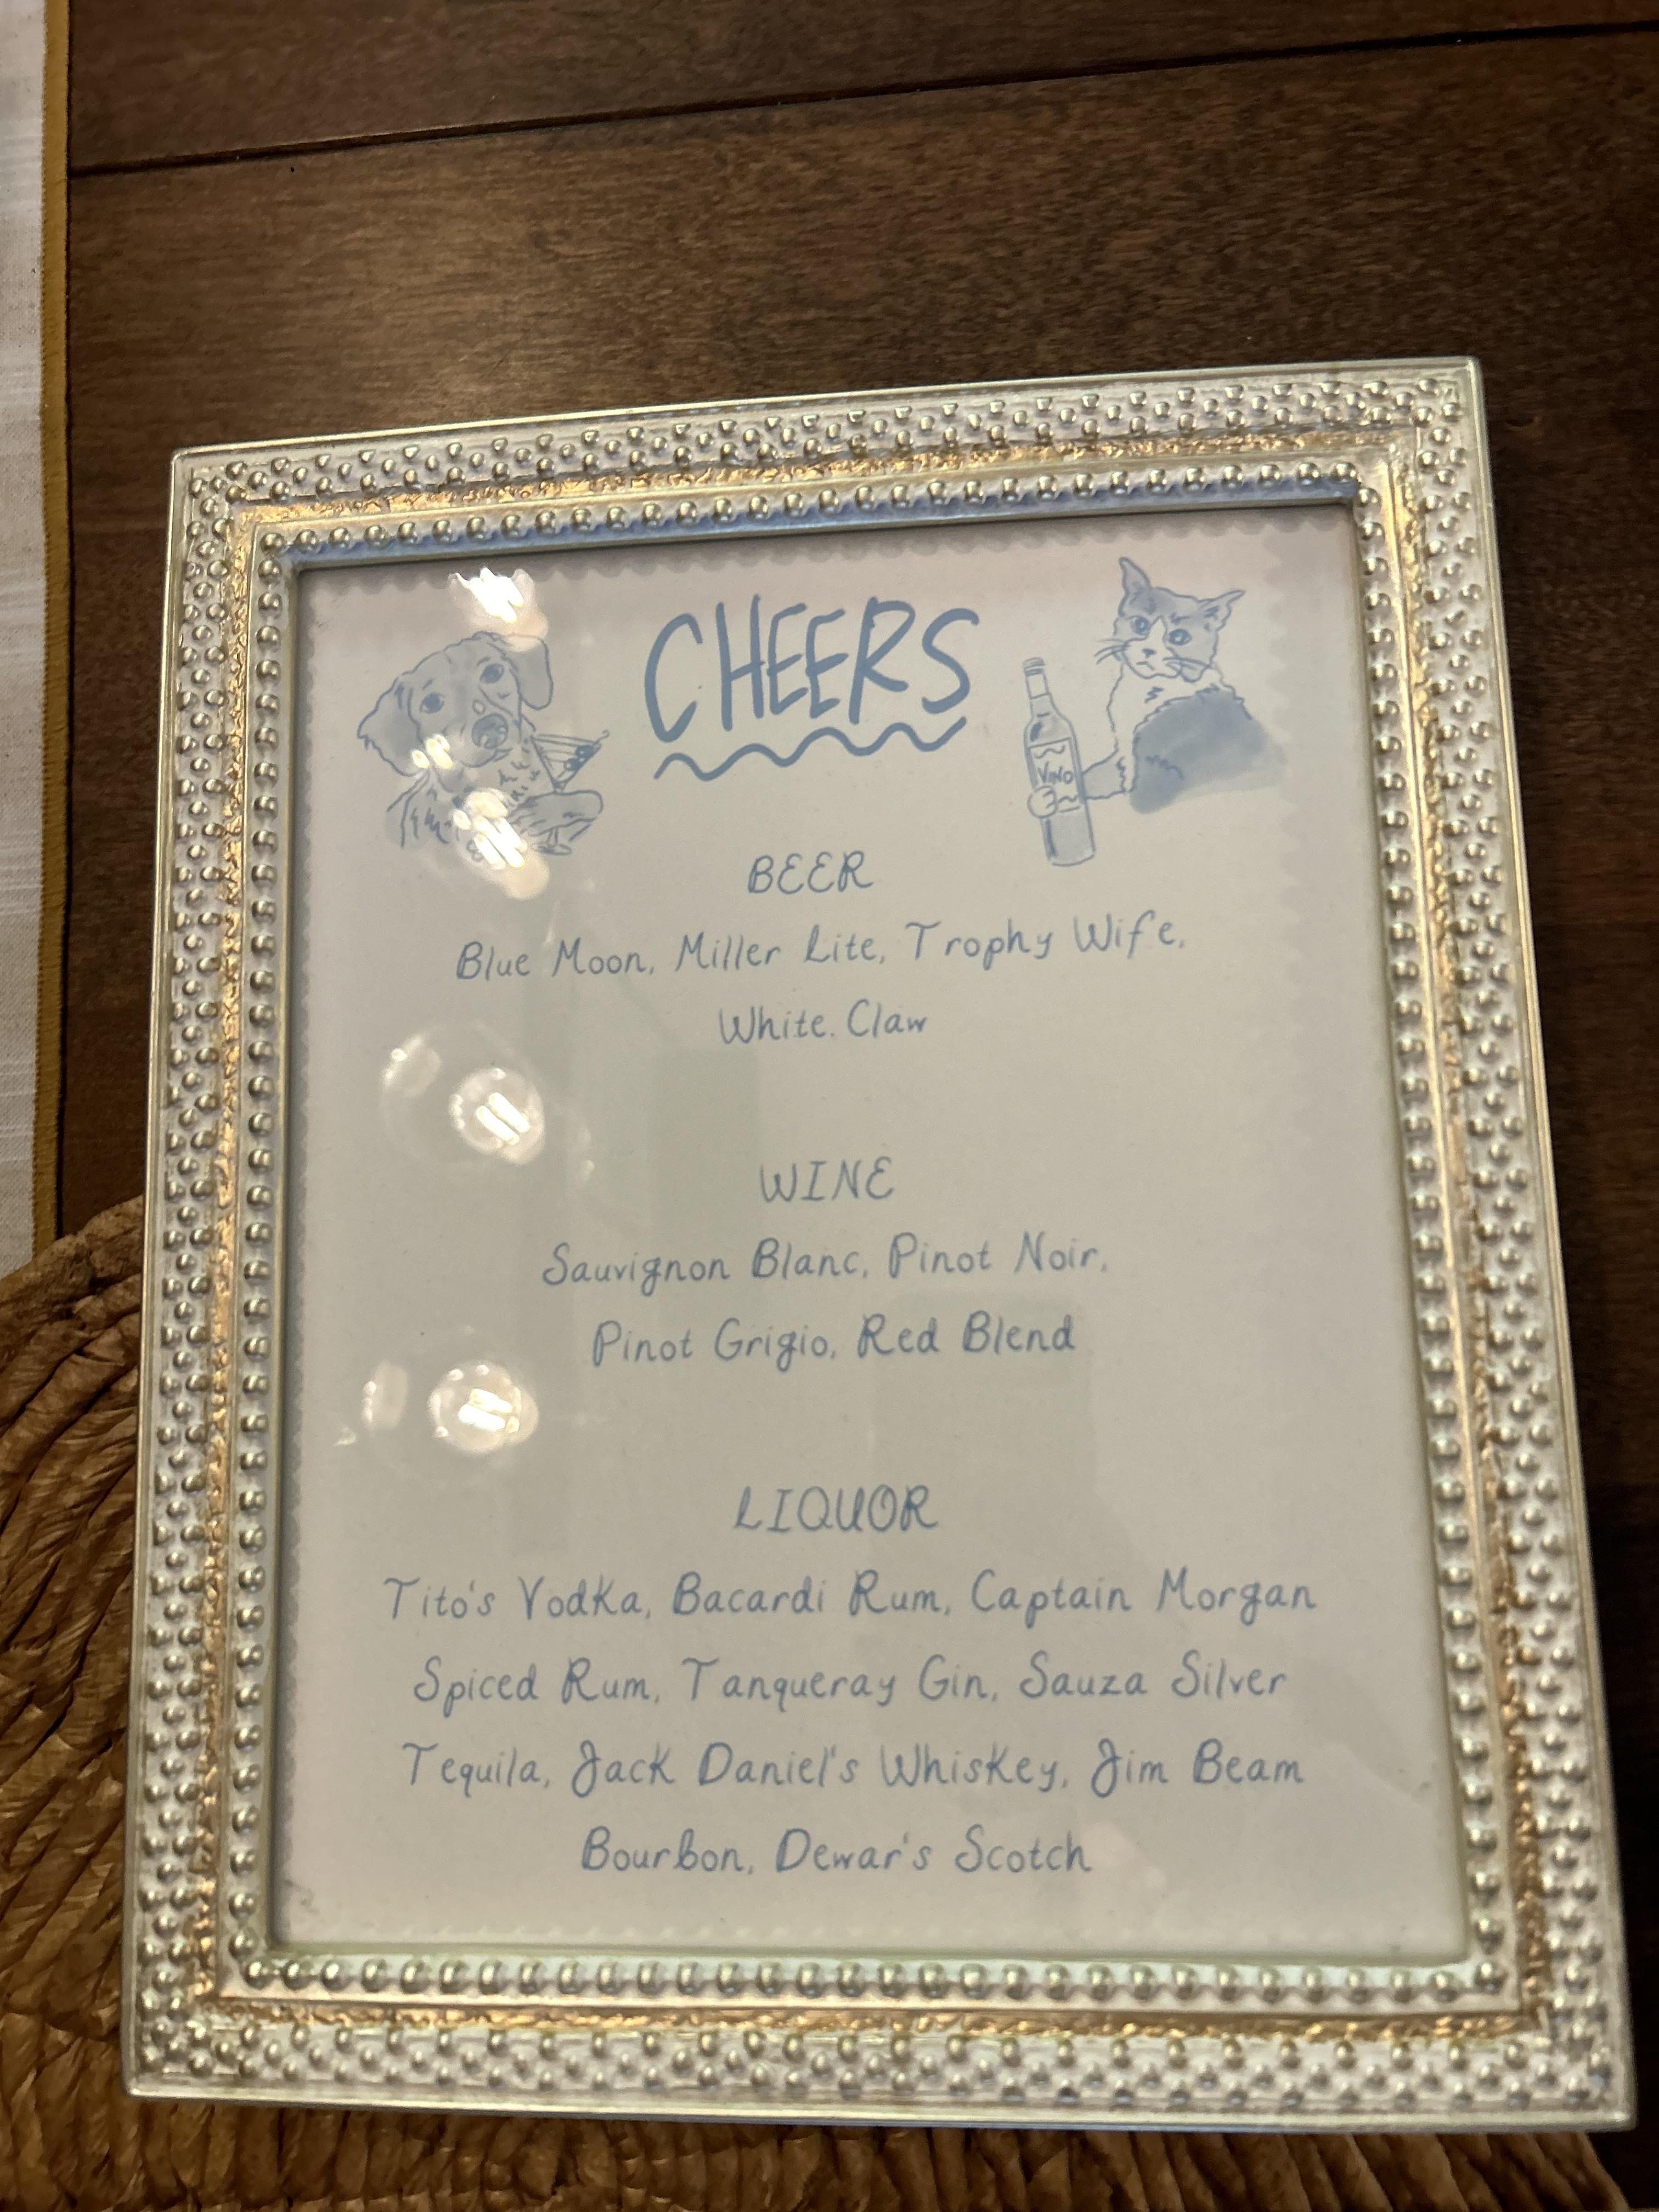 CHEERS
VINO
BEER
Blue Moon, Miller Lite, Trophy Wife,
White Claw
WINE
Sauvignon Blanc, Pinot Noir,
Pinot Grigio, Red Blend
LIQUOR
Tito's Vodka, Bacardi Rum, Captain Morgan
Spiced Rum, Tanqueray Gin, Sauza Silver
Tequila, Jack Daniel's Whiskey, Jim Beam
Bourbon, Dewar's Scotch